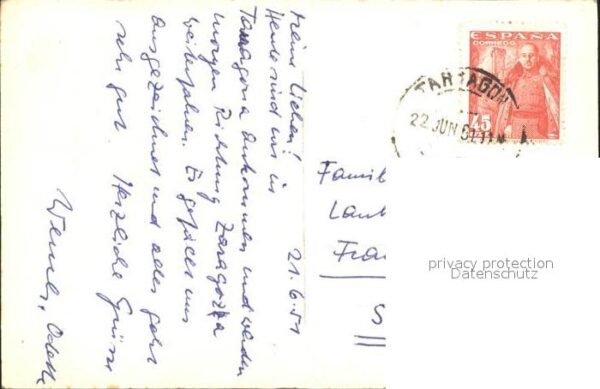 21.6.51
Meine Lieben!
Heute sind wir in
Tarragona Ankommen und werden
morgen Richtung Zaragoza
weiterfahren. Es gefällt uns
ausgezeichnet und alles geht
sehr gut. Herzliche Grüsse
Odette
ESPAÑA
CORREOS
45
TARRAGON
22 JUN 51
Famil
Fra
privacy protection
Datenschutz